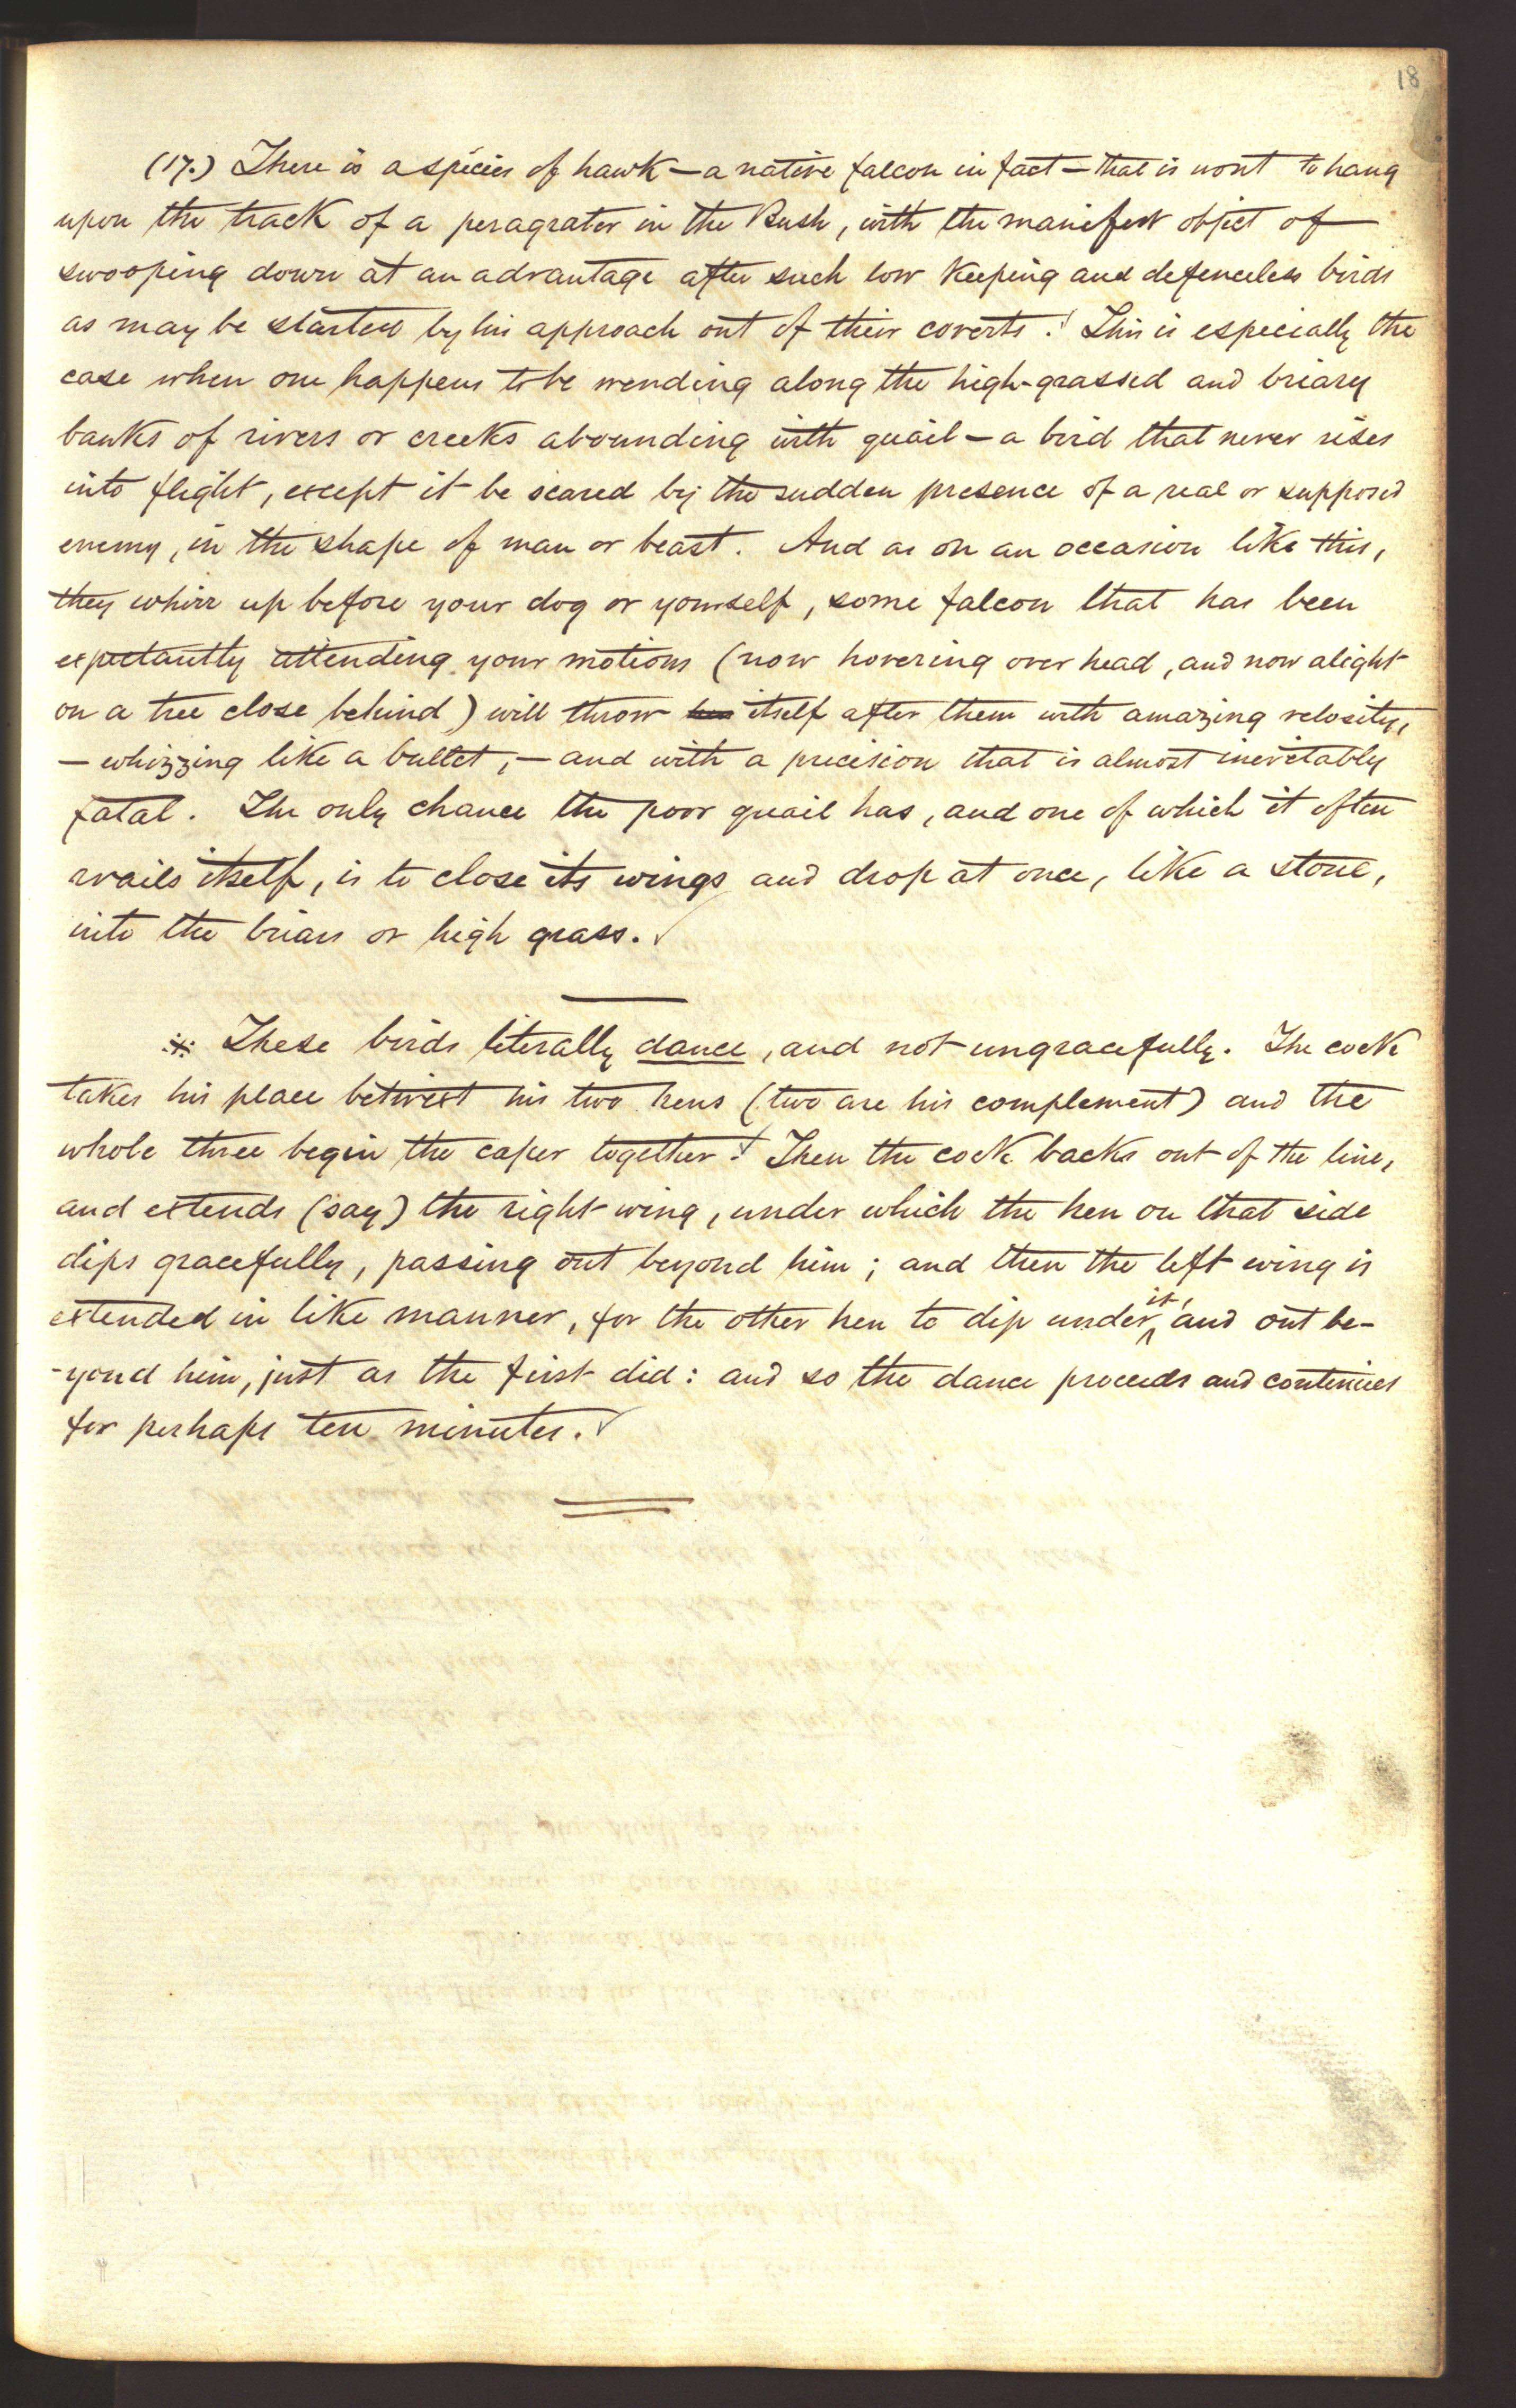 18
(17.) There is a species of hawk — a native falcon in fact — that is wont to hang
upon the track of a peragrator in the Bush, with the manifest object of
swooping down at an advantage after such low keeping and defenceless birds
as may be started by his approach out of their coverts. This is especially the
case when one happens to be wending along the high-grassed and briary
banks of rivers or creeks abounding with quail — a bird that never rises
into flight, except it be scared by the sudden presence of a real or supposed
enemy, in the shape of man or beast. And as on an occasion like this,
they whirr up before your dog or yourself, some falcon that has been
expectantly attending your motions (now hovering over head, and now alight
on a tree close behind) will throw itself after them with amazing velosity,
— whizzing like a bullet, — and with a precision that is almost inevitably
fatal. The only chance the poor quail has, and one of which it often
avails itself, is to close its wings and drop at once, like a stone,
into the briars or high grass. ✓
※ These birds literally dance, and not ungracefully. The cock
takes his place betwixt his two hens (two are his complement) and the
whole three begin the caper together. Then the cock backs out of the line,
and extends (say) the right wing, under which the hen on that side
dips gracefully, passing out beyond him; and then the left wing is
extended in like manner, for the other hen to dip under it, and out be-
-yond him, just as the first did: and so the dance proceeds and continues
for perhaps ten minutes. ✓